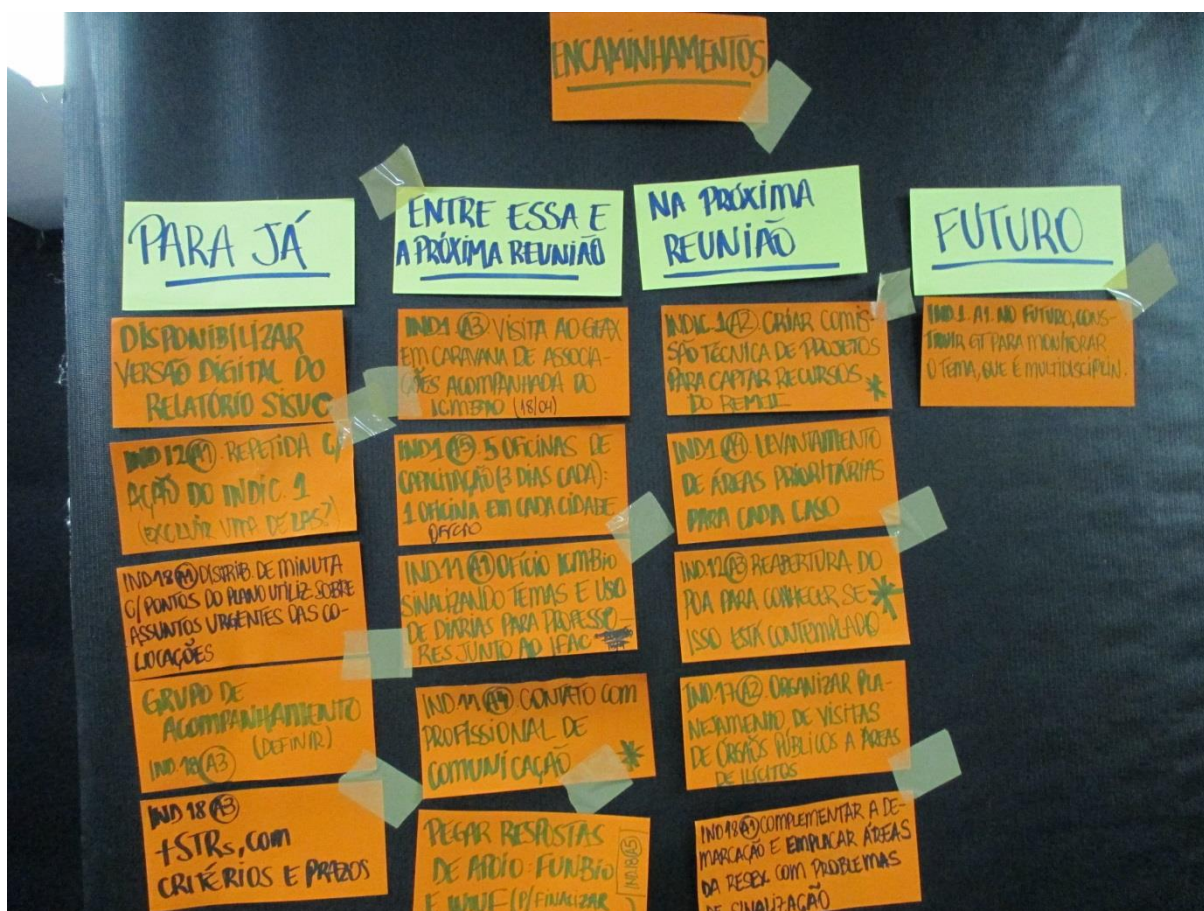 ENCAMINHAMENTOS
PARA JÁ
DISPONIBILIZAR
VERSÃO DIGITAL DO
RELATÓRIO SISUC
IND 12 (A1) REPETIDA C/
AÇÃO DO INDIC. 1
(EXCLUIR UMA DELAS?)
IND.18 DISTRIB. DE MINUTA
C/ PONTOS DO PLANO UTILIZ. SOBRE
ASSUNTOS URGENTES DAS CO-
LOCAÇÕES
GRUPO DE
ACOMPANHAMENTO
(DEFINIR)
IND.18 (A3)
IND 18 (A3)
+STRs, COM
CRITÉRIOS E PRAZOS
ENTRE ESSA E
A PRÓXIMA REUNIÃO
IND1 (A3) VISITA AO
EM CARAVANA DE ASSOCIA-
ÇÕES ACOMPANHADA DO
ICMBIO (18/04)
IND1 (A5). 5 OFICINAS DE
CAPACITAÇÃO (3 DIAS CADA):
1 OFICINA EM CADA CIDADE
IND.11 (A1) OFÍCIO ICMBio
SINALIZANDO TEMAS E USO
DE DIÁRIAS PARA PROFESSO-
RES JUNTO AO IFAC
IND.11 (A4) CONTATO COM
PROFISSIONAL DE
COMUNICAÇÃO *
PEGAR RESPOSTAS
DE APOIO: FUNBIO
E WWF (P/ FINALIZAR
IND.18 (A5)
NA PRÓXIMA
REUNIÃO
INDIC. 1 (A2). CRIAR COMIS-
SÃO TÉCNICA DE PROJETOS
PARA CAPTAR RECURSOS *
DO
IND1 (A4) LEVANTAMENTO
DE ÁREAS PRIORITÁRIAS
PARA CADA CASO
IND.12 (A3) REABERTURA DO
POA PARA CONHECER SE *
ISSO ESTÁ CONTEMPLADO
IND.17 (A2). ORGANIZAR PLA-
NEJAMENTO DE VISITAS
DE ÓRGÃOS PÚBLICOS A ÁREAS
DE ILÍCITOS
IND 18 (A1) COMPLEMENTAR A DE-
MARCAÇÃO E EMPLACAR ÁREAS
DA RESEX COM PROBLEMAS
DE SINALIZAÇÃO
FUTURO
IND 1. A1. NO FUTURO, CONS-
TRUIR GT PARA MONITORAR
O TEMA, QUE É MULTIDISCIPLIN.